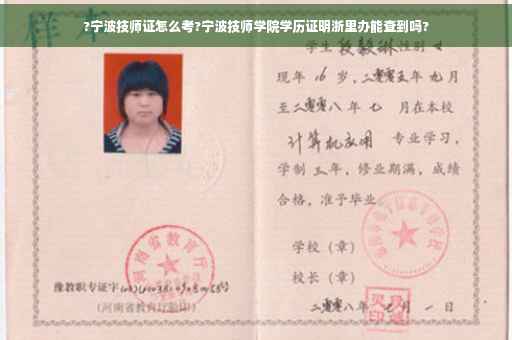 ?宁波技师证怎么考?宁波技师学院学历证明浙里办能查到吗?
样本
学生段毅琳性别女
现年16岁,二零零五年九月
至二零零八年七月在本校
计算机应用 专业学习,
学制三年,修业期满,成绩
合格,准予毕业。
学校(章)
校长(章)
二零零八年七月一日
河南省教育厅
豫教职专证字
(河南省教育厅验印)